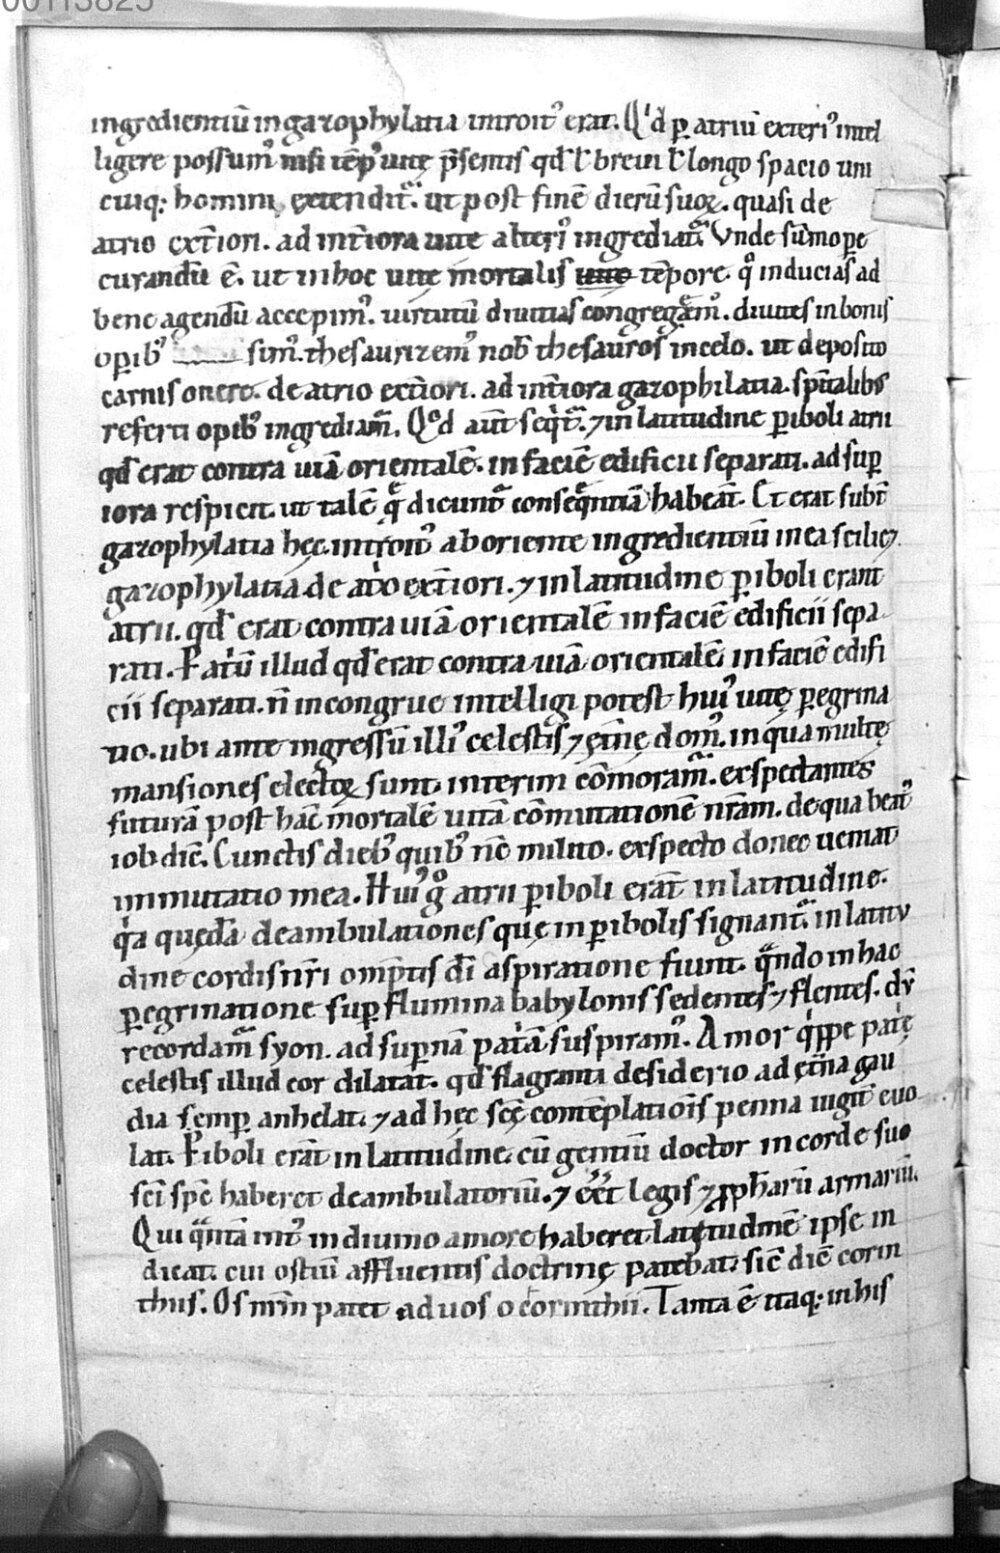 00113825
ingredientiū in gazophylatia introit᾿ erat. Qͥd ꝑ atriū exteri᾿ intel
ligere possum᾿ nisi tēp᾿ uitę p̄sentis qd̄ ł breui ł longo spacio uni
cuiq; homini extendit᷑. ut post finē dierū suoꝝ. quasi de
atrio ext̄iori. ad int̄iora uitę alteri᾿ ingrediat᷑. Vnde sūmope
curandū ē. ut in hoc uitę mortalis uite tēpore. qͦ inducias ad
bene agendū accepim᾿. uirtutū diuitias congregem᾿. diuites in bonis
opib᾿ sim᾿. thesaurizem᾿ nob᾿ thesauros in celo. ut deposito
carnis onere. de atrio ext̄iori. ad int̄iora gazophilatia. sp̄italib᾿
referti opib᾿ ingrediam᷑. Qͦd aūt seqͥt᷑. ⁊ in latitudine ꝑiboli atrii
qd̄ erat contra uiā orientalē. in faciē edificii separati. ad supͥ
iora respicit. ut talē qͥ dicunt᷑ conseqͣntiā habeāt. Et erat subt̄
gazophylatia hęc. introit᾿ ab oriente ingredientiū in ea scilic
gazophylatia de atͥo ext̄iori. ⁊ in latitudine ꝑiboli erant
atrii. qd̄ erat contra uiā orientalē in faciē edificii sepa
rati. P atͥū illud qd̄ erat contra uiā orientalē in faciē edifi
cii separati. n̄ incongrue intelligi potest hui᾿ uitę ꝑegrina
tio. ubi ante ingressū illi᾿ celestis ⁊ ęt̄nę dom᾿. in qua multę
mansiones electoꝝ sunt. interim cōmoram᷑. exspectantes
futurā post hāc mortalē uitā cōmutationē nr̄am. de qua beat᾿
iob dic̄. Cunctis dieb᾿ quib᾿ nc̄ milito. exspecto donec ueniat
immutatio mea. Hui᾿ gͦ atrii ꝑiboli erāt in latitudine.
qͥa quędā deambulationes quę in ꝑibolis signant᷑. in latitu
dine cordis nr̄i omp̄tis dī aspiratione fiunt. qͣndo in hac
ꝑegrinatione suꝑ flumina babylonis sedentes ⁊ flentes. dū
recordam᷑ syon. ad suꝑnā patͥā suspiram᾿. Amor qͥppe patͥę
celestis illud cor dilatat. qd̄ flagranti desiderio ad ęt̄na gau
dia semꝑ anhelat. ⁊ ad hęc scę̄ contēplationis penna iugit̄ euo
lat. Piboli erāt in latitudine. cū gentiū doctor in corde suo
sc̄i spc̄ haberet deambulatoriū. ⁊ eēt legis ⁊ ꝓph̄arū armariū.
Qui qͣntā int᾿ in diuino amore haberet latitudinē ipse in
dicat. cui ostiū affluentis doctrinę patebat. sic̄ dic̄ corin
thiis. Os nr̄m patet ad uos o corinthii. Tanta ē itaq; in his